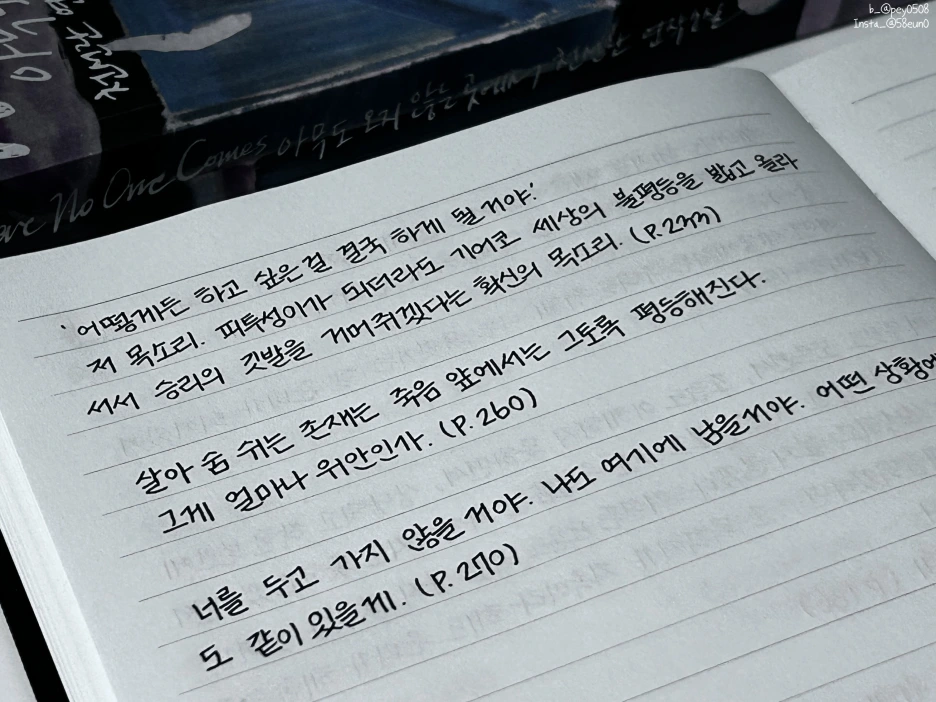 b_@pey0508
Insta_@58eun0
No One Comes 아무도 오지 않는 곳에서
'어떻게든 하고 싶은 걸 결국 하게 될 거야.'
저 목소리. 피투성이가 되더라도 기어코 세상의 불평등을 밟고 올라
서서 승리의 깃발을 거머쥐겠다는 확신의 목소리. (P.233)
살아 숨 쉬는 존재는 죽음 앞에서는 그토록 평등해진다.
그게 얼마나 위안인가. (P.260)
너를 두고 가지 않을 거야. 나도 여기에 남을거야. 어떤 상황에
도 같이 있을게. (P.270)